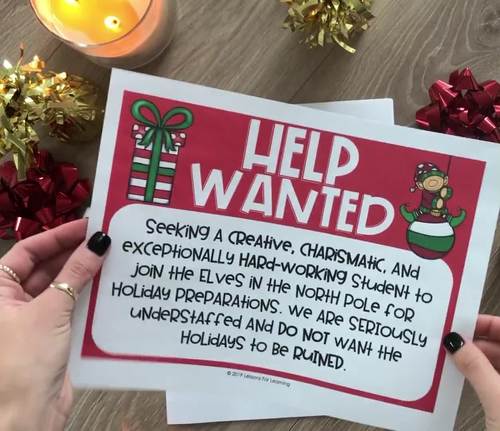 HELP
WANTED
Seeking a creative, charismatic, and
exceptionally hard-working student to
join the elves in the North Pole for
holiday preparations. We are seriously
understaffed and DO NOT want the
holidays to be RUINED.
© 2019 Lessons For Learning